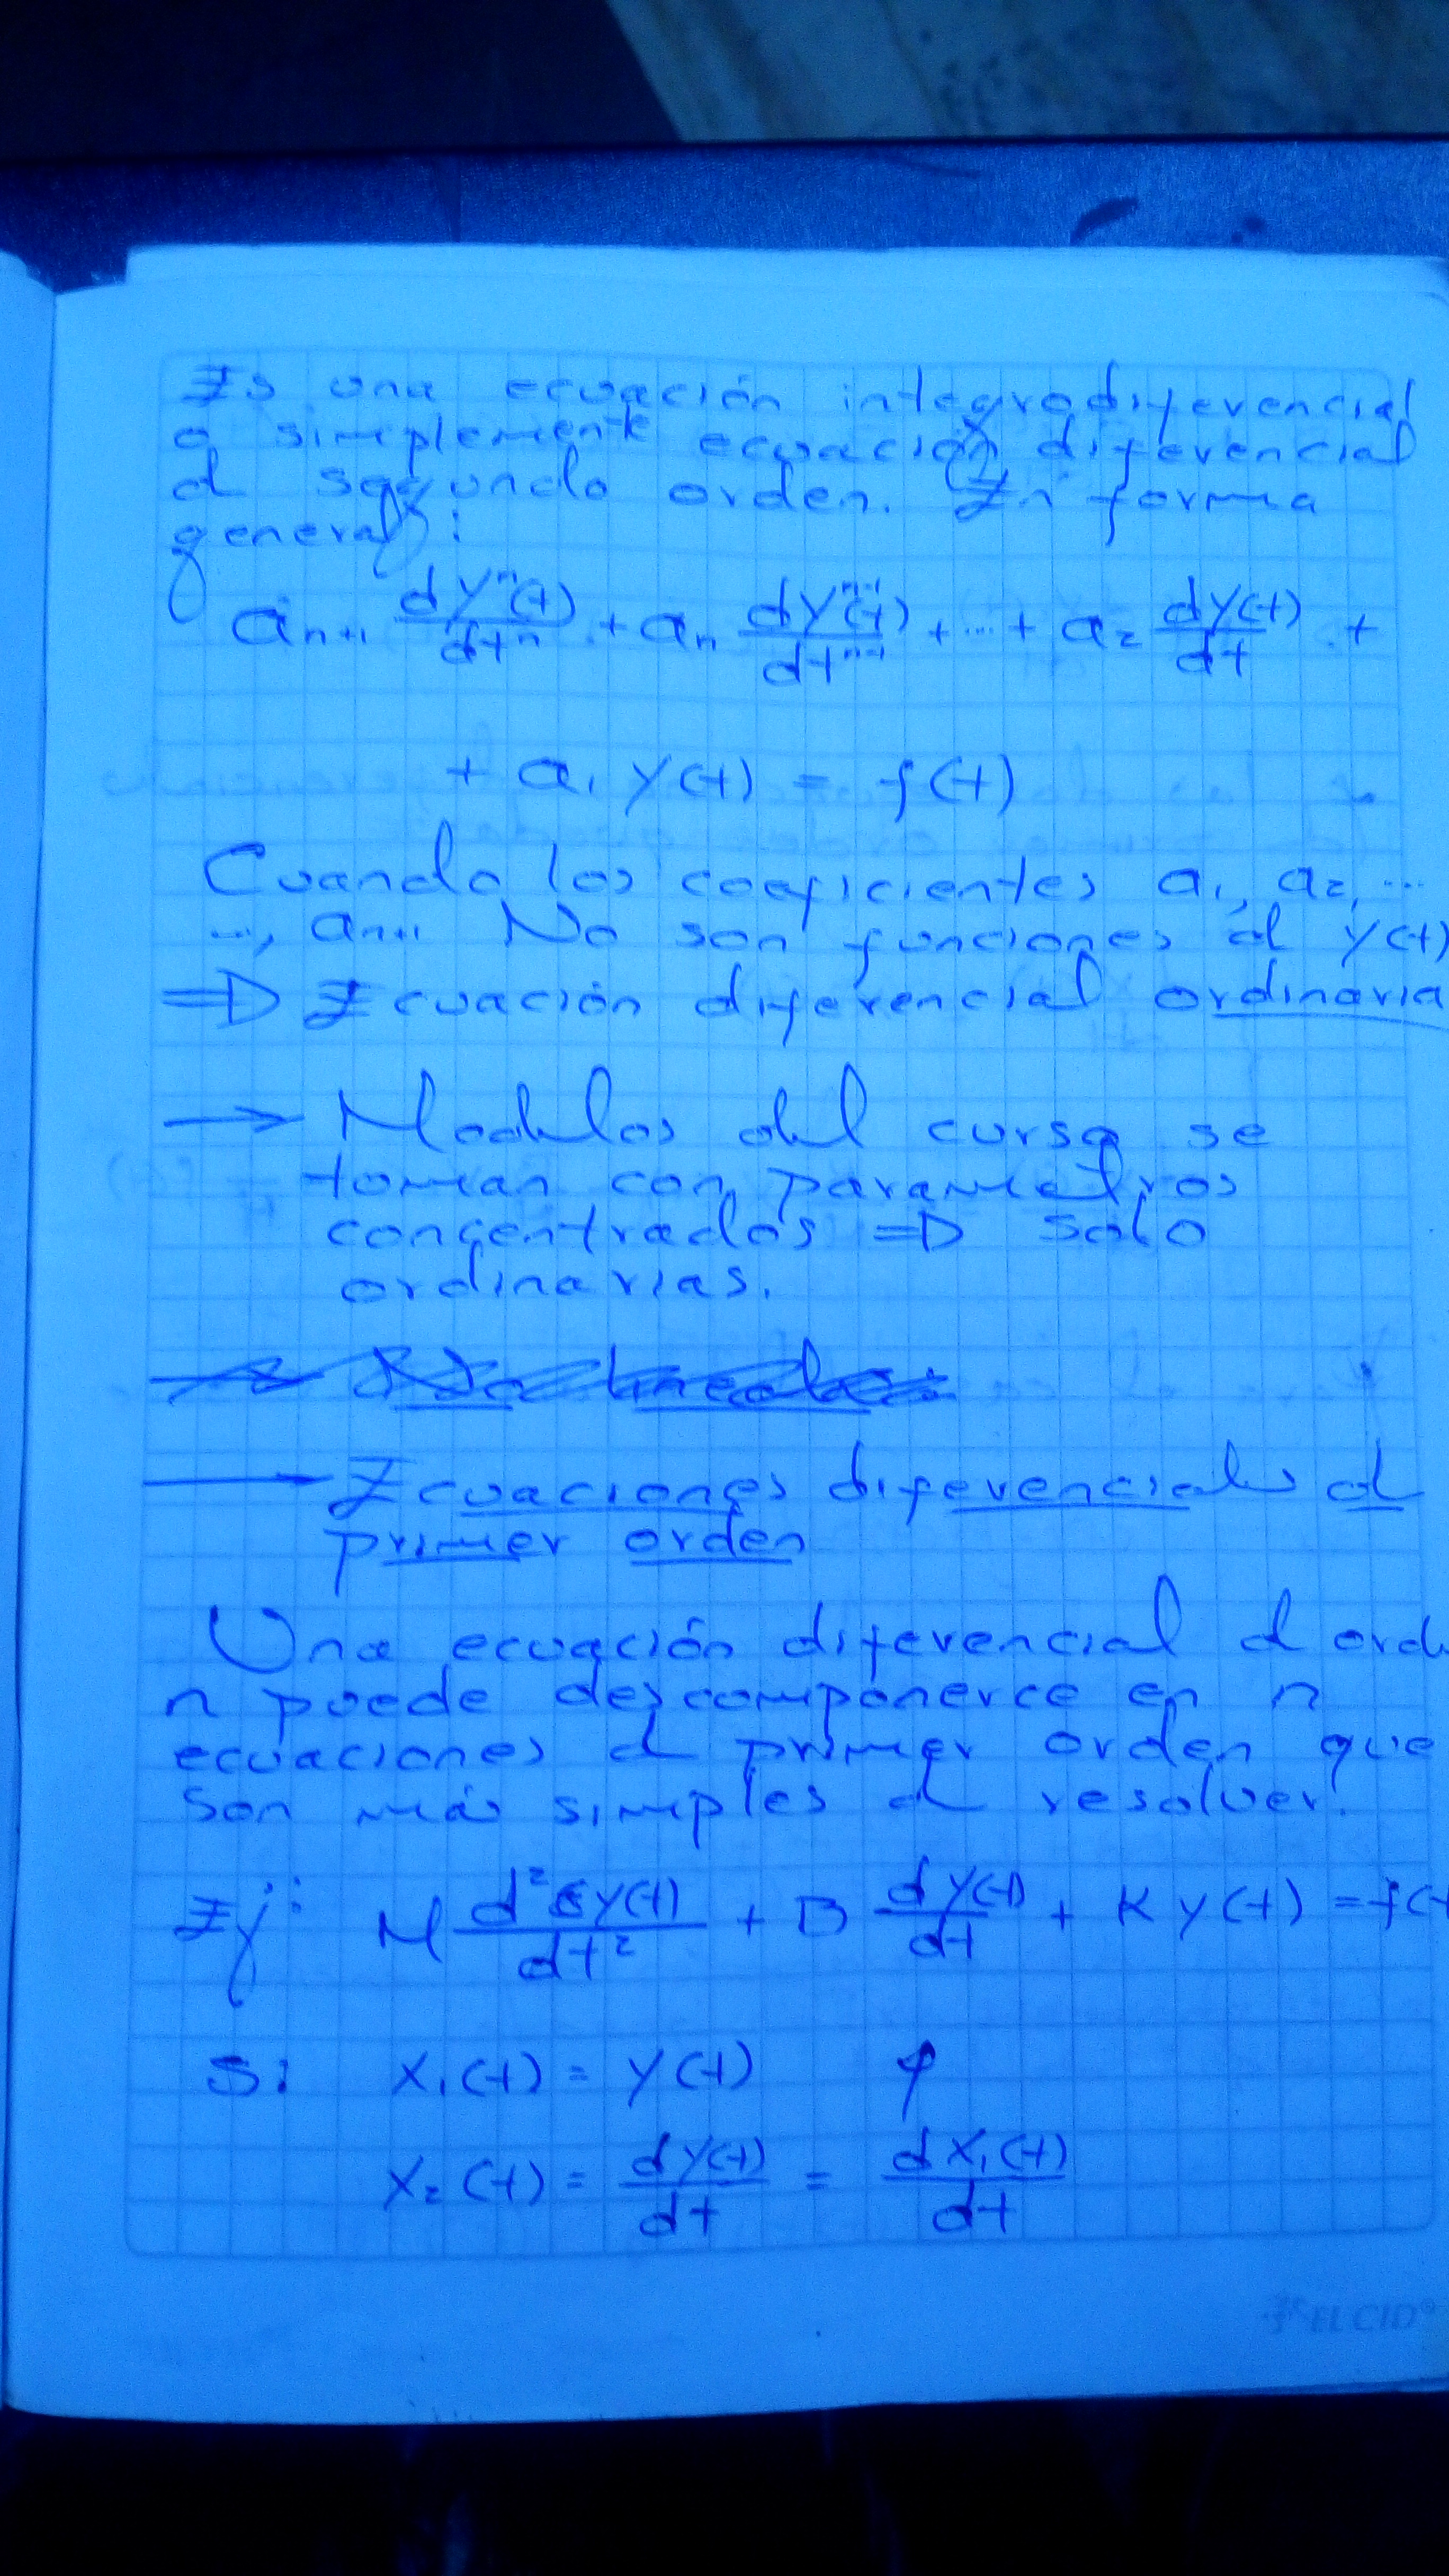 Es una ecuación integrodiferencial
o simplemente ecuación diferencial
d segundo orden. En forma
general:
aₙ₊₁ dyⁿ(t)/dtⁿ + aₙ dyⁿ⁻¹(t)/dtⁿ⁻¹ + ... + a₂ dy(t)/dt +
+ a₁ y(t) = f(t)
Cuando los coeficientes a₁, a₂, ...
..., aₙ₊₁ No son funciones d y(t)
=> Ecuación diferencial ordinaria
→ Modelos del curso se
toman con parametros
concentrados => solo
ordinarias.
→ Ecuaciones diferenciales d
primer orden
Una ecuación diferencial d orde
n puede descomponerce en n
ecuaciones d primer orden que
son más simples d resolver.
Ej: M d²y(t)/dt² + B dy(t)/dt + K y(t) = f(t
Si x₁(t) = y(t) y
x₂(t) = dy(t)/dt = dx₁(t)/dt
EL CID®